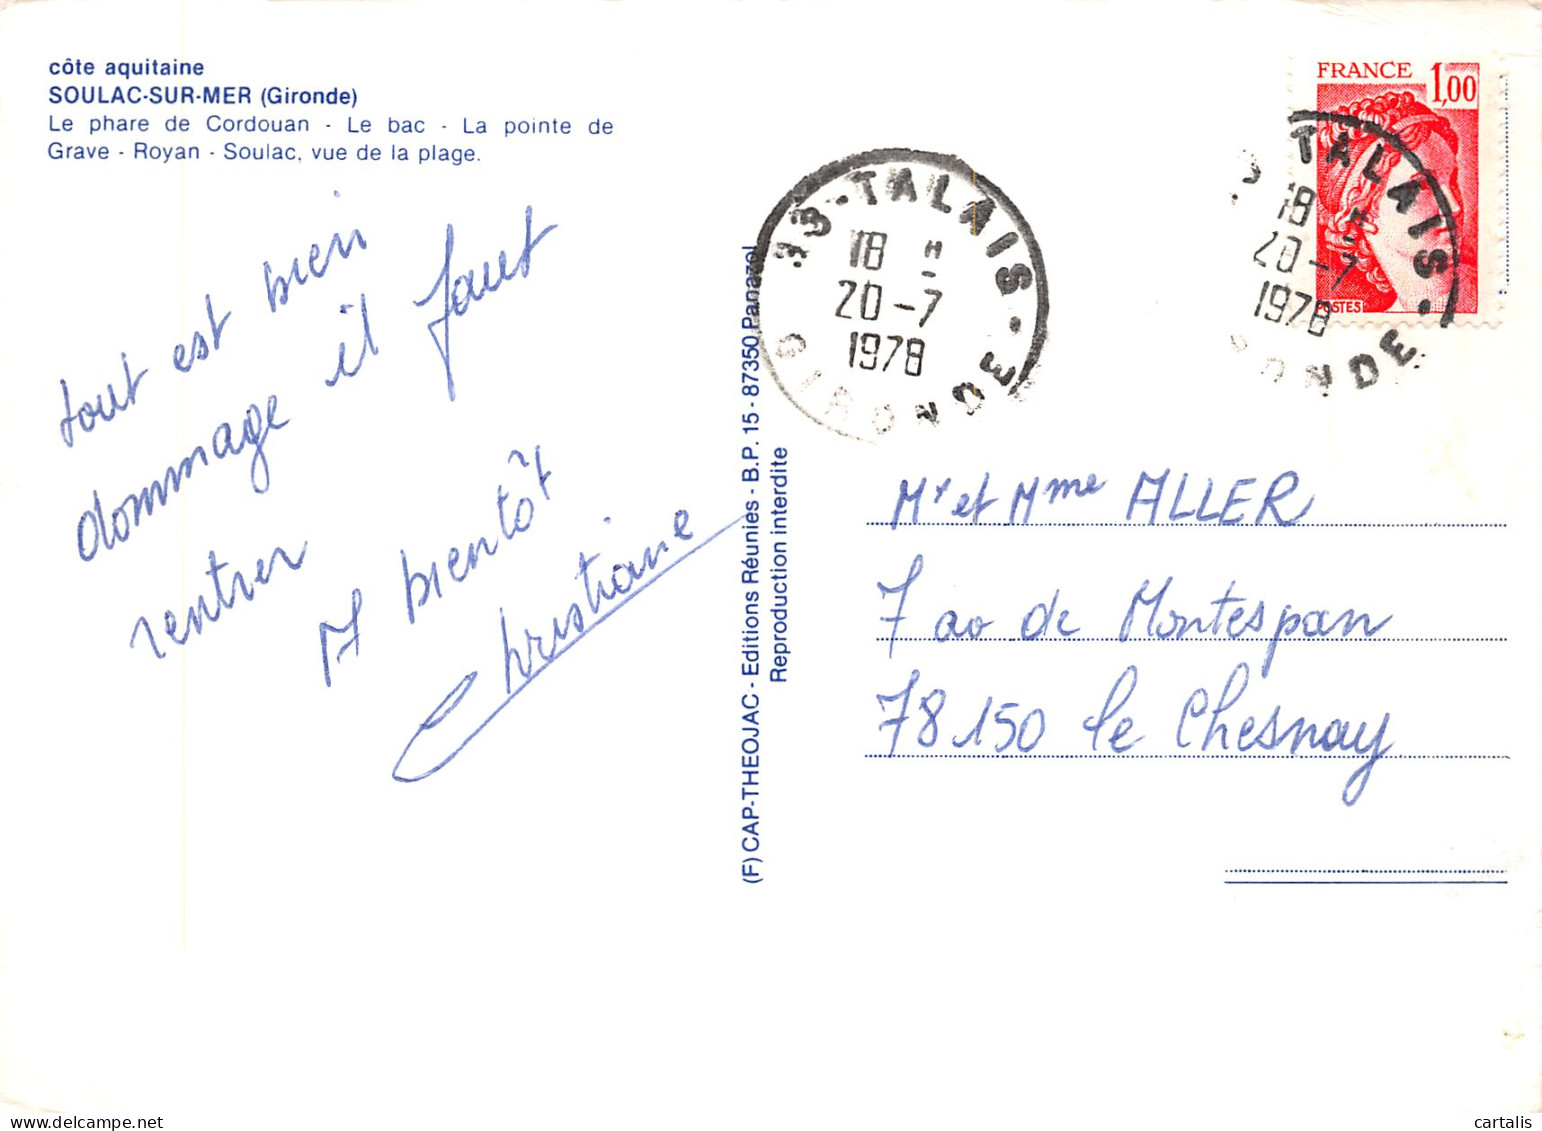 côte aquitaine
SOULAC-SUR-MER (Gironde)
Le phare de Cordouan - Le bac - La pointe de
Grave - Royan - Soulac, vue de la plage.
tout est bien
dommage il faut
rentrer
A bientôt
Christiane
(F) CAP-THEOJAC - Editions Réunies - B.P. 15 - 87350 Panazol
Reproduction interdite
33-TALAIS-
18 H
20-7
1978
GIRONDE
FRANCE 1,00
POSTES
TALAIS-
18 H
20-7
1978
RONDE
Mr et Mme ALLER
7 av de Montespan
78150 le Chesnay
cartalis